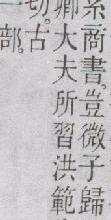 系商書。豈微子歸
卿大夫所習洪範
切。古
部。